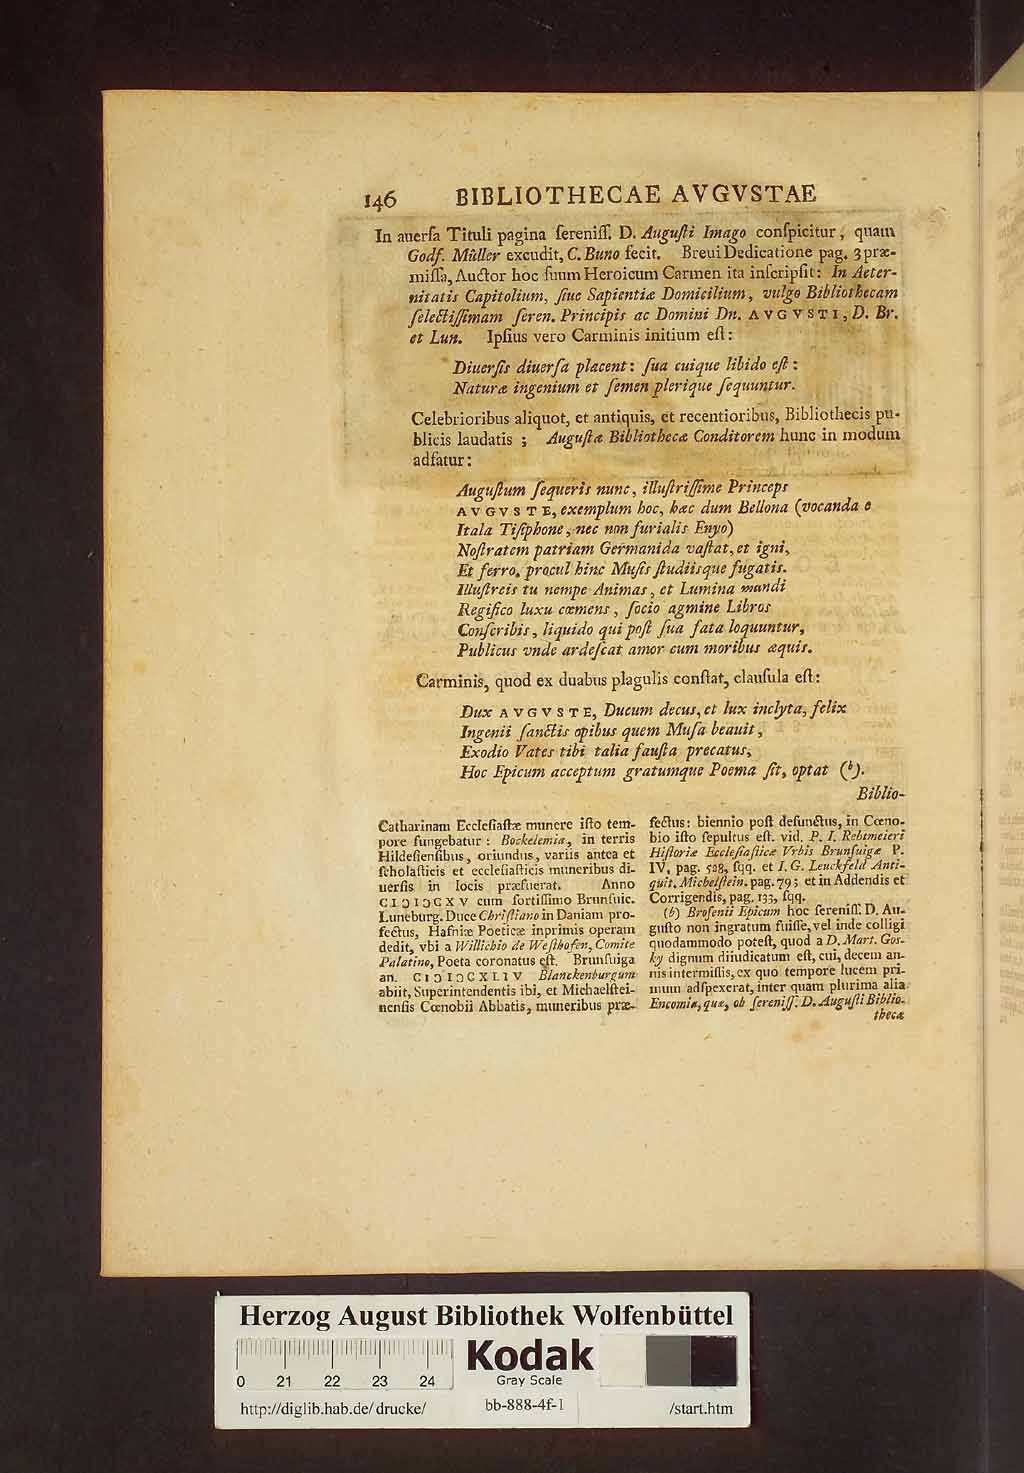 146 BIBLIOTHECAE AVGVSTAE
In auerſa Tituli pagina ſereniſſ. D. Auguſti Imago conſpicitur, quam
Godf. Müller excudit, C. Buno fecit. Breui Dedicatione pag. 3 præ-
miſſa, Auctor hoc ſuum Heroicum Carmen ita inſcripſit: In Aeter-
nitatis Capitolium, ſiue Sapientiæ Domicilium, vulgo Bibliothecam
ſelectiſſimam ſeren. Principis ac Domini Dn. AVGVSTI, D. Br.
et Lun. Ipſius vero Carminis initium eſt:
Diuerſis diuerſa placent: ſua cuique libido eſt:
Naturæ ingenium et ſemen plerique ſequuntur.
Celebrioribus aliquot, et antiquis, et recentioribus, Bibliothecis pu-
blicis laudatis; Auguſtæ Bibliothecæ Conditorem hunc in modum
adfatur:
Auguſtum ſequeris nunc, illuſtriſſime Princeps
AVGVSTE, exemplum hoc, hæc dum Bellona (vocanda e
Itala Tiſiphone, nec non furialis Enyo)
Noſtratem patriam Germanida vaſtat, et igni,
Et ferro, procul hinc Muſis ſtudiisque fugatis.
Illuſtreis tu nempe Animas, et Lumina mundi
Regifico luxu cœmens, ſocio agmine Libros
Conſcribis, liquido qui poſt ſua fata loquuntur,
Publicus vnde ardeſcat amor cum moribus æquis.
Carminis, quod ex duabus plagulis conſtat, clauſula eſt:
Dux AVGVSTE, Ducum decus, et lux inclyta, felix
Ingenii ſanctis opibus quem Muſa beauit,
Exodio Vates tibi talia fauſta precatus,
Hoc Epicum acceptum gratumque Poema ſit, optat (b).
Biblio-
Catharinam Eccleſiaſtæ munere iſto tem-
pore fungebatur: Bockelemia, in terris
Hildeſienſibus, oriundus, variis antea et
ſcholaſticis et eccleſiaſticis muneribus di-
uerſis in locis præfuerat. Anno
CIↃIↃCXV cum fortiſſimo Brunſuic.
Luneburg. Duce Chriſtiano in Daniam pro-
fectus, Hafniæ Poeticæ inprimis operam
dedit, vbi a Willichio de Weſthofen, Comite
Palatino, Poeta coronatus eſt. Brunſuiga
an. CIↃIↃCXLIV Blanckenburgum
abiit, Superintendentis ibi, et Michaelſtei-
nenſis Cœnobii Abbatis, muneribus præ-
fectus: biennio poſt defunctus, in Cœno-
bio iſto ſepultus eſt. vid. P. I. Rehtmeieri
Hiſtoriæ Eccleſiaſticæ Vrbis Brunſuigæ P.
IV, pag. 528, ſqq. et I. G. Leuckfeld Anti-
quit. Michelſtein. pag. 79; et in Addendis et
Corrigendis, pag. 133, ſqq.
(b) Broſenii Epicum hoc ſereniſſ. D. Au-
guſto non ingratum fuiſſe, vel inde colligi
quodammodo poteſt, quod a D. Mart. Gos-
ky dignum diiudicatum eſt, cui, decem an-
nis intermiſſis, ex quo tempore lucem pri-
mum adſpexerat, inter quam plurima alia
Encomia, quæ, ob ſereniſſ. D. Auguſti Biblio-
thecæ
Herzog August Bibliothek Wolfenbüttel
Kodak
Gray Scale
0 21 22 23 24
http://diglib.hab.de/drucke/ bb-888-4f-1 /start.htm